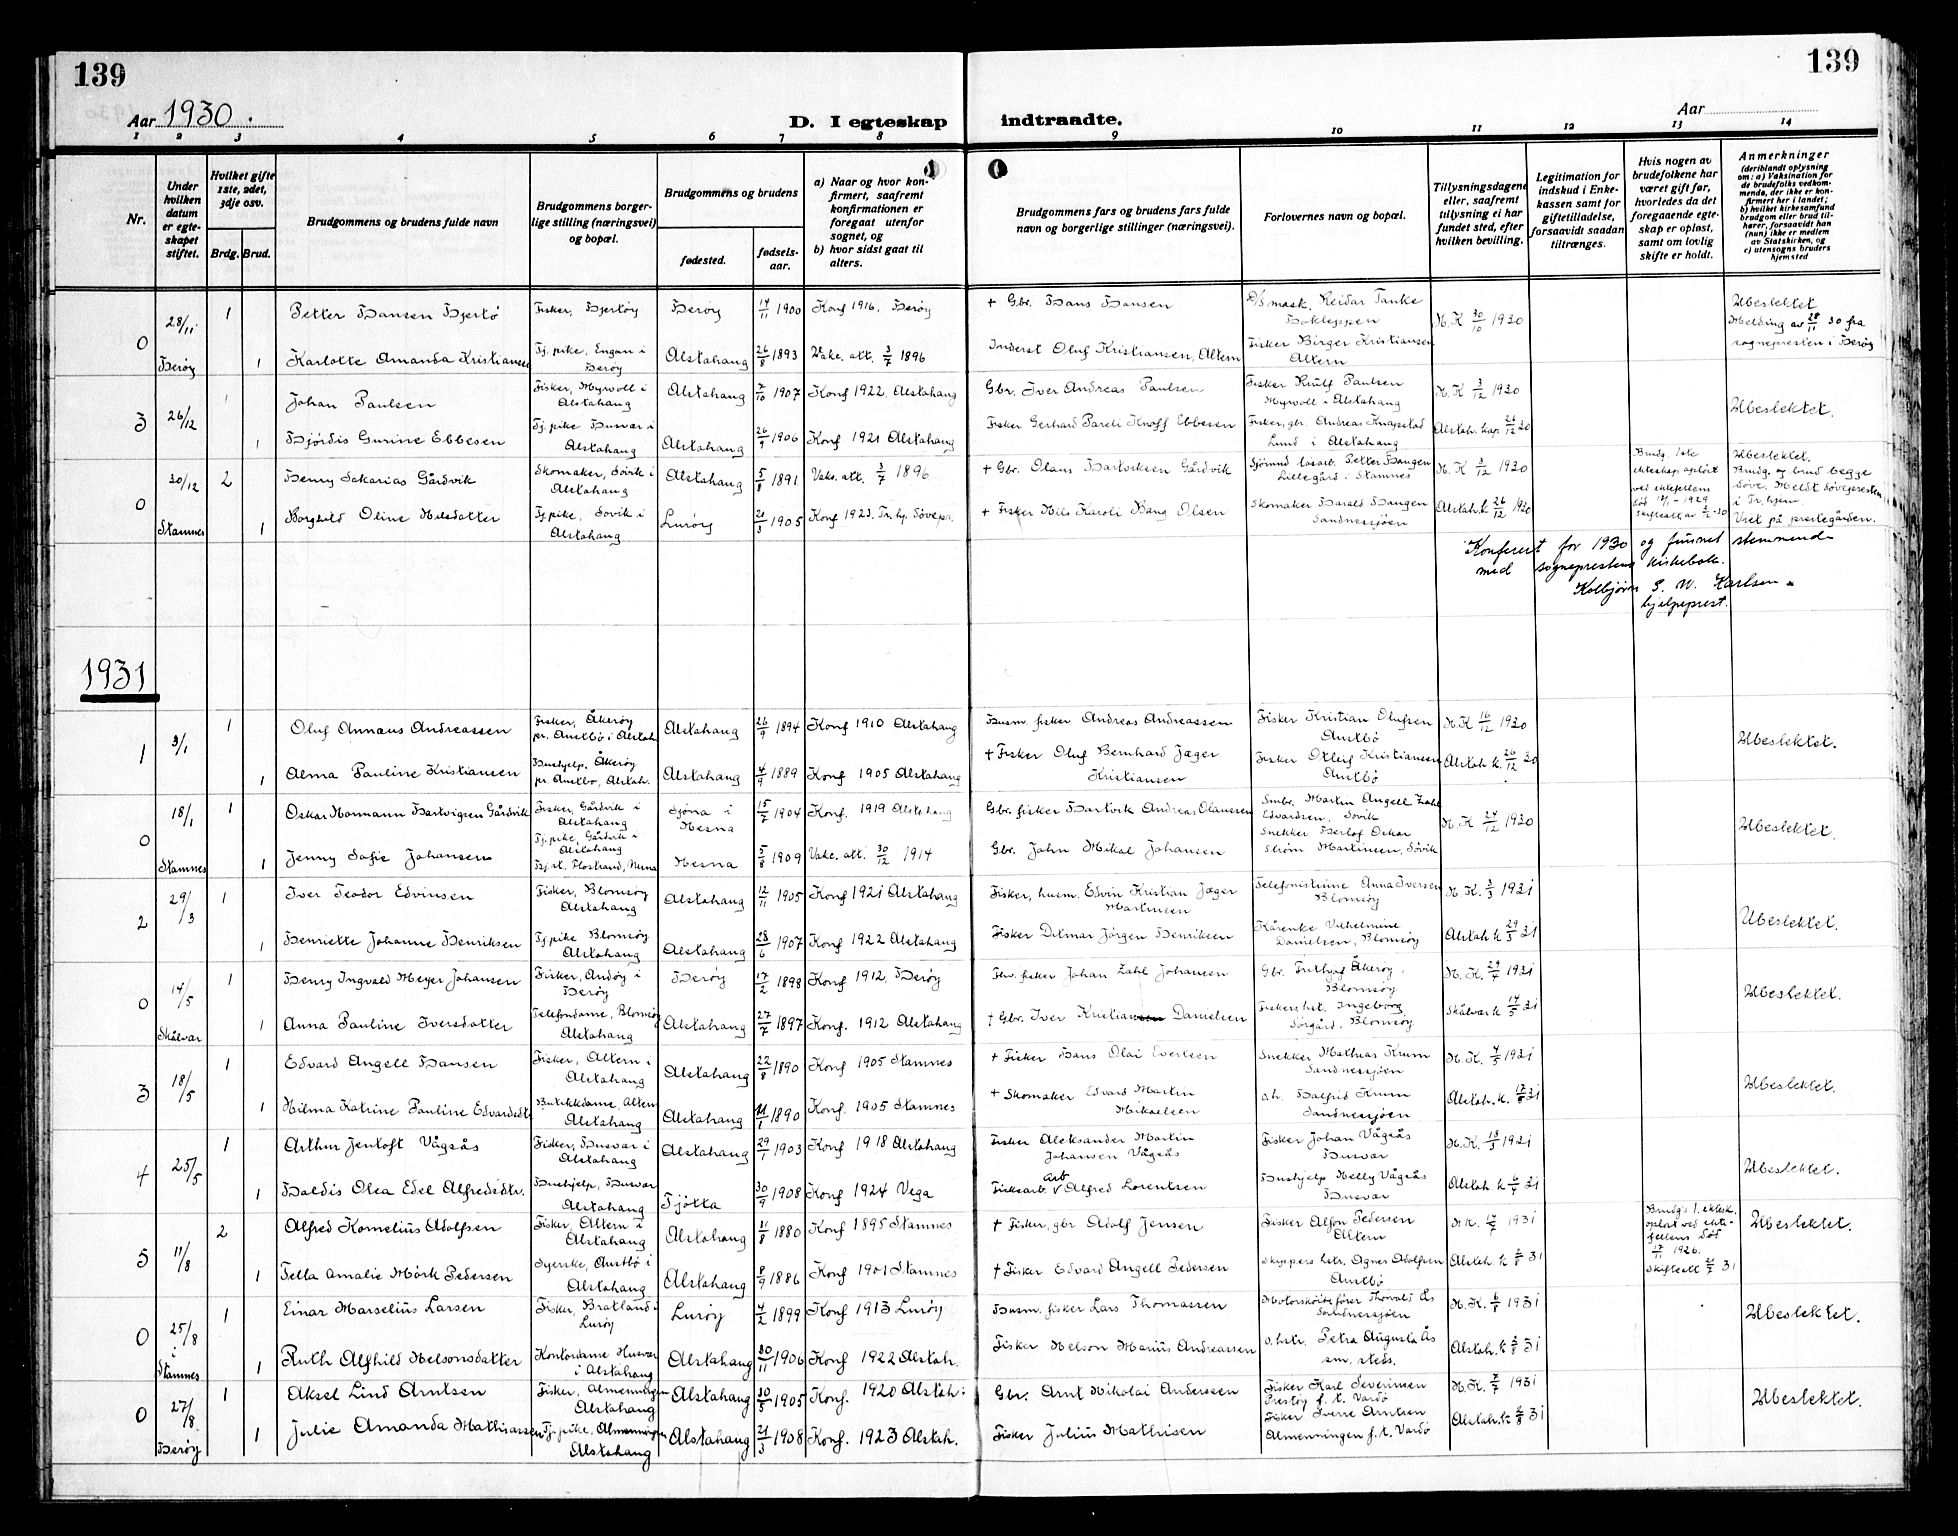 139
139
Aar 1930.
D. I egteskap indtraadte.
Aar
1 2 3 4 5 6 7 8 9 10 11 12 13 14
Nr.
Under hvilken datum er egteskapet stiftet.
Hvilket gifte 1ste, 2det, 3dje osv.
Brdg. Brud.
Brudgommens og brudens fulde navn
Brudgommens borgerlige stilling (næringsvei) og bopæl.
Brudgommens og brudens
fødested.
fødselsaar.
a) Naar og hvor konfirmert, saafremt konfirmationen er foregaat utenfor sognet, og
b) hvor sidst gaat til alters.
Brudgommens fars og brudens fars fulde navn og borgerlige stillinger (næringsvei).
Forlovernes navn og bopæl.
Tillysningsdagene eller, saafremt tillysning ei har fundet sted, efter hvilken bevilling.
Legitimation for indskud i Enkekassen samt for giftetilladelse, forsaavidt saadan tiltrænges.
Hvis nogen av brudefolkene har været gift før, hvorledes da det foregaaende egteskap er opløst, samt om lovlig skifte er holdt.
Anmerkninger
(deriblandt oplysning om: a) Vaksination for de brudefolks vedkommende, der ikke er konfirmert her i landet; b) hvilket kirkesamfund brudgom eller brud tilhører, forsaavidt han (hun) ikke er medlem av Statskirken, og c) utensogns bruders hjemsted
0 28/11 Herøy
1 Petter Hansen Hjertø Fisker, Hjertøy Herøy 14/11 1900 Konf 1916, Herøy + Gbr. Hans Hansen D/S mask. Reidar Tanke Hokleppen N.K 30/10 1930 Ubeslektet Melding av 28/11 30 fra sognepresten i Herøy
1 Karlotte Amanda Kristiansen Tj. pike, Engan i Herøy Alstahaug 26/8 1893 Vakc. att. 3/7 1896 Inderst Oluf Kristiansen, Altern Fisker Birger Kristiansen Altern
3 26/12
1 Johan Paulsen Fisker, Myrvoll i Alstahaug Alstahaug 7/10 1907 Konf 1922, Alstahaug Gbr. Iver Andreas Paulsen Fisker Paulsen Myrvoll i Alstahaug N.K 3/12 1930 Ubeslektet.
1 Hjördis Gurine Ebbesen Tj. pike Husvær i Alstahaug Alstahaug 26/9 1906 Konf 1921 Alstahaug Fisker Gerhard Pareli Knoff Ebbesen Fisker, gbr. Andreas Knapstad Lund i Alstahaug Alstah. kap. 26/12 30
0 30/12 Stamnes
2 Henry Sakarias Gårdvik Skomaker, Søvik i Alstahaug Alstahaug 5/8 1891 Vakc. att. 3/7 1896 + Gbr. Olaus Hartviksen Gårdvik Sjømnd losarb. Petter Haugen Lillegård i Stamnes N.K 3/12 1930 Brudg. 1ste ekteskap opløst ved ektefellens død 1929 Skifteatt. av 3/2 -30 Ubeslektet. Brudg. og brud begge døve. Meldt døvepresten i Tr.hjem Viet på prestegården.
1 Borghild Oline Nilsdatter Tj pike, Søvik i Alstahaug Lurøy 21/3 1905 Konf 1923. Tr. hj. Døvepr. + Fisker Nils Karoli Bang Olsen Skomaker Harald Haugen Sandnessjøen Alstah. k 26/12 1930
Konferert for 1930 og funnet stemmende
med sogneprestens kirkebok.
Kolbjørn E. W. Karlsen
hjelpeprest.
1931
1 3/1
1 Oluf Annæus Andreassen Fisker, Åkerøy pr. Austbø i Alstah. Alstahaug 26/9 1894 Konf 1910 Alstahaug Husm. fisker Andreas Andreassen Fisker Kristian Olufsen Austbø N.K 16/12 1930 Ubeslektet.
1 Alma Pauline Kristiansen Hushjelp, Åkerøy pr Austbø, Alstah. Alstahaug 4/9 1889 Konf 1905 Alstahaug + Fisker Oluf Bernhard Jæger Kristiansen Fisker Otluf Kristiansen Austbø Alstah k. 26/12 30
0 18/1 Stamnes
1 Oskar Normann Hartvigsen Gårdvik Fisker, Gårdvik i Alstahaug Sjona i Nesna 15/7 1904 Konf. 1919 Alstahaug Gbr. fisker Hartvik Andreas Olaussen Smbr. Martin Angell Zahl Edvardsen, Søvik N.K 27/12 1930 Ubeslektet.
1 Jenny Sofie Johansen Tj. pike, Gårdvik i Alstahaug Hj.st. Flostrand, Nesna Nesna 5/8 1909 Vakc. att. 30/12 1914 Gbr. John Mikal Johansen Snekker Herlof Oskar Strøm Martinsen, Søvik
2 29/3
1 Iver Teodor Edvinsen Fisker, Blomsøy Alstahaug Alstahaug 12/11 1905 Konf 1921 Alstahaug Fisker, husm. Edvin Kristian Jæger Martinsen Telefonistinne Anna Iversen Blomsøy N.K. 3/3 1931 Ubeslektet.
1 Henriette Johanne Henriksen Tj pike Blomsøy Alstahaug Alstahaug 28/6 1907 Konf 1922 Alstahaug Fisker Ditmar Jörgen Henriksen Kårenke Vilhelmine Danielsen, Blomsøy Alstah k 29/3 31
0 14/5 Skålvær
1 Henry Ingvald Meyer Johansen Fisker, Andøy i Herøy Herøy 17/2 1898 Konf 1912, Herøy Fhv. fisker Johan Zahl Johansen Gbr. Frithjof Åkerøy, Blomsøy N.K. 29/4 1931 Ubeslektet.
1 Anna Pauline Iversdatter Telefondame, Blomsøy Alstahaug Alstahaug 27/7 1897 Konf. 1912 Alstahaug + Gbr. Iver Kristian Danielsen Fiskers hst. Ingeborg Sørgård, Blomsøy Skålvær k 14/5 31
3 18/5
1 Edvard Angell Hansen Fisker, Altern i Alstahaug Alstahaug 22/8 1890 Konf 1905 Stamnes + Fisker Hans Olai Evertsen Snekker Mathias Krum Sandnessjøen N.K. 4/5 1931 Ubeslektet.
1 Hilma Katrine Pauline Edvardsdtr Butikkdame, Altern Alstahaug Alstahaug 11/1 1890 Konf. 1905 Stamnes + Skomaker Edvard Martin Mikaelsen Halfrid Krum Sandnessjøen Alstah. k. 17/5 31
4 25/5
1 Arthur Jentoft Vågsås Fisker, Husvær i Alstahaug Alstahaug 29/1 1903 Konf 1918 Alstahaug Fisker Aleksander Martin Johansen Vågsås Fisker Johan Vågsås Husvær N.K. 18/5 1931 Ubeslektet.
1 Haldis Olea Edel Alfredsdtr. Hushjelp, Husvær Alstahaug Tjötta 30/9 1908 Konf 1924 Vega Fiskearb. Alfred Lorentsen Hushjelp Nelly Vågsås Husvær Alstah k 31
5 11/8
2 Alfred Kornelius Adolfsen Fisker, Altern i Alstahaug Alstahaug 11/8 1880 Konf 1895 Stamnes + Fisker, gbr Adolf Jensen Fisker Alfon Pedersen Altern N.K. 17/7 1931 Brudg's 1. ektesk. opløst ved ektefellens død 17/11 1926. Skifteatt 31 Ubeslektet.
1 Tella Amalie Mörk Pedersen Syerske, Austbø i Alstahaug Alstahaug 8/9 1886 Konf 1901 Stamnes + Fisker Edvard Angell Pedersen Skippers hstr. Agnes Adolfsen Austbø Alstah k 31
0 25/8 i Stamnes
1 Einar Marselius Larsen Fisker, Bratland i Lurøy Lurøy 4/2 1899 Konf 1913 Lurøy Husm. fisker Lars Thomassen Motorskøitefører Thorvald Ås Sandnessjøen N.K. 1931 Ubeslektet.
1 Ruth Alfhild Nelsonsdatter Kontordame Husvær i Alstahaug Alstahaug 30/11 1906 Konf 1922 Alstah. Fisker Nelson Marius Andreassen o. hstr. Petra Augusta Ås sm. steds. Alstah. k 31
0 27/8 Herøy
1 Aksel Lind Arntsen Fisker, Almenningen Alstahaug Alstahaug 30/5 1905 Konf. 1920 Alstah. Gbr. Arnt Nikolai Anderssen Fisker Karl Severinsen Prestøy f. t. Vardø N.K. 7/7 1931 Ubeslektet.
1 Julie Amanda Mathiassen Tj. pike, Almenningen Alstahaug Alstahaug 21/3 1908 Konf. 1923 Alstah. Fisker Julius Mathisen Fisker Sverre Arntsen Almenningen f. t. Vardø Alstah. k 31